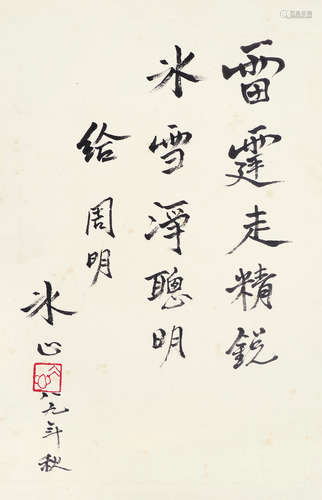 雷霆走精鋭
冰雪淨聰明
給周明
冰心
八九年秋